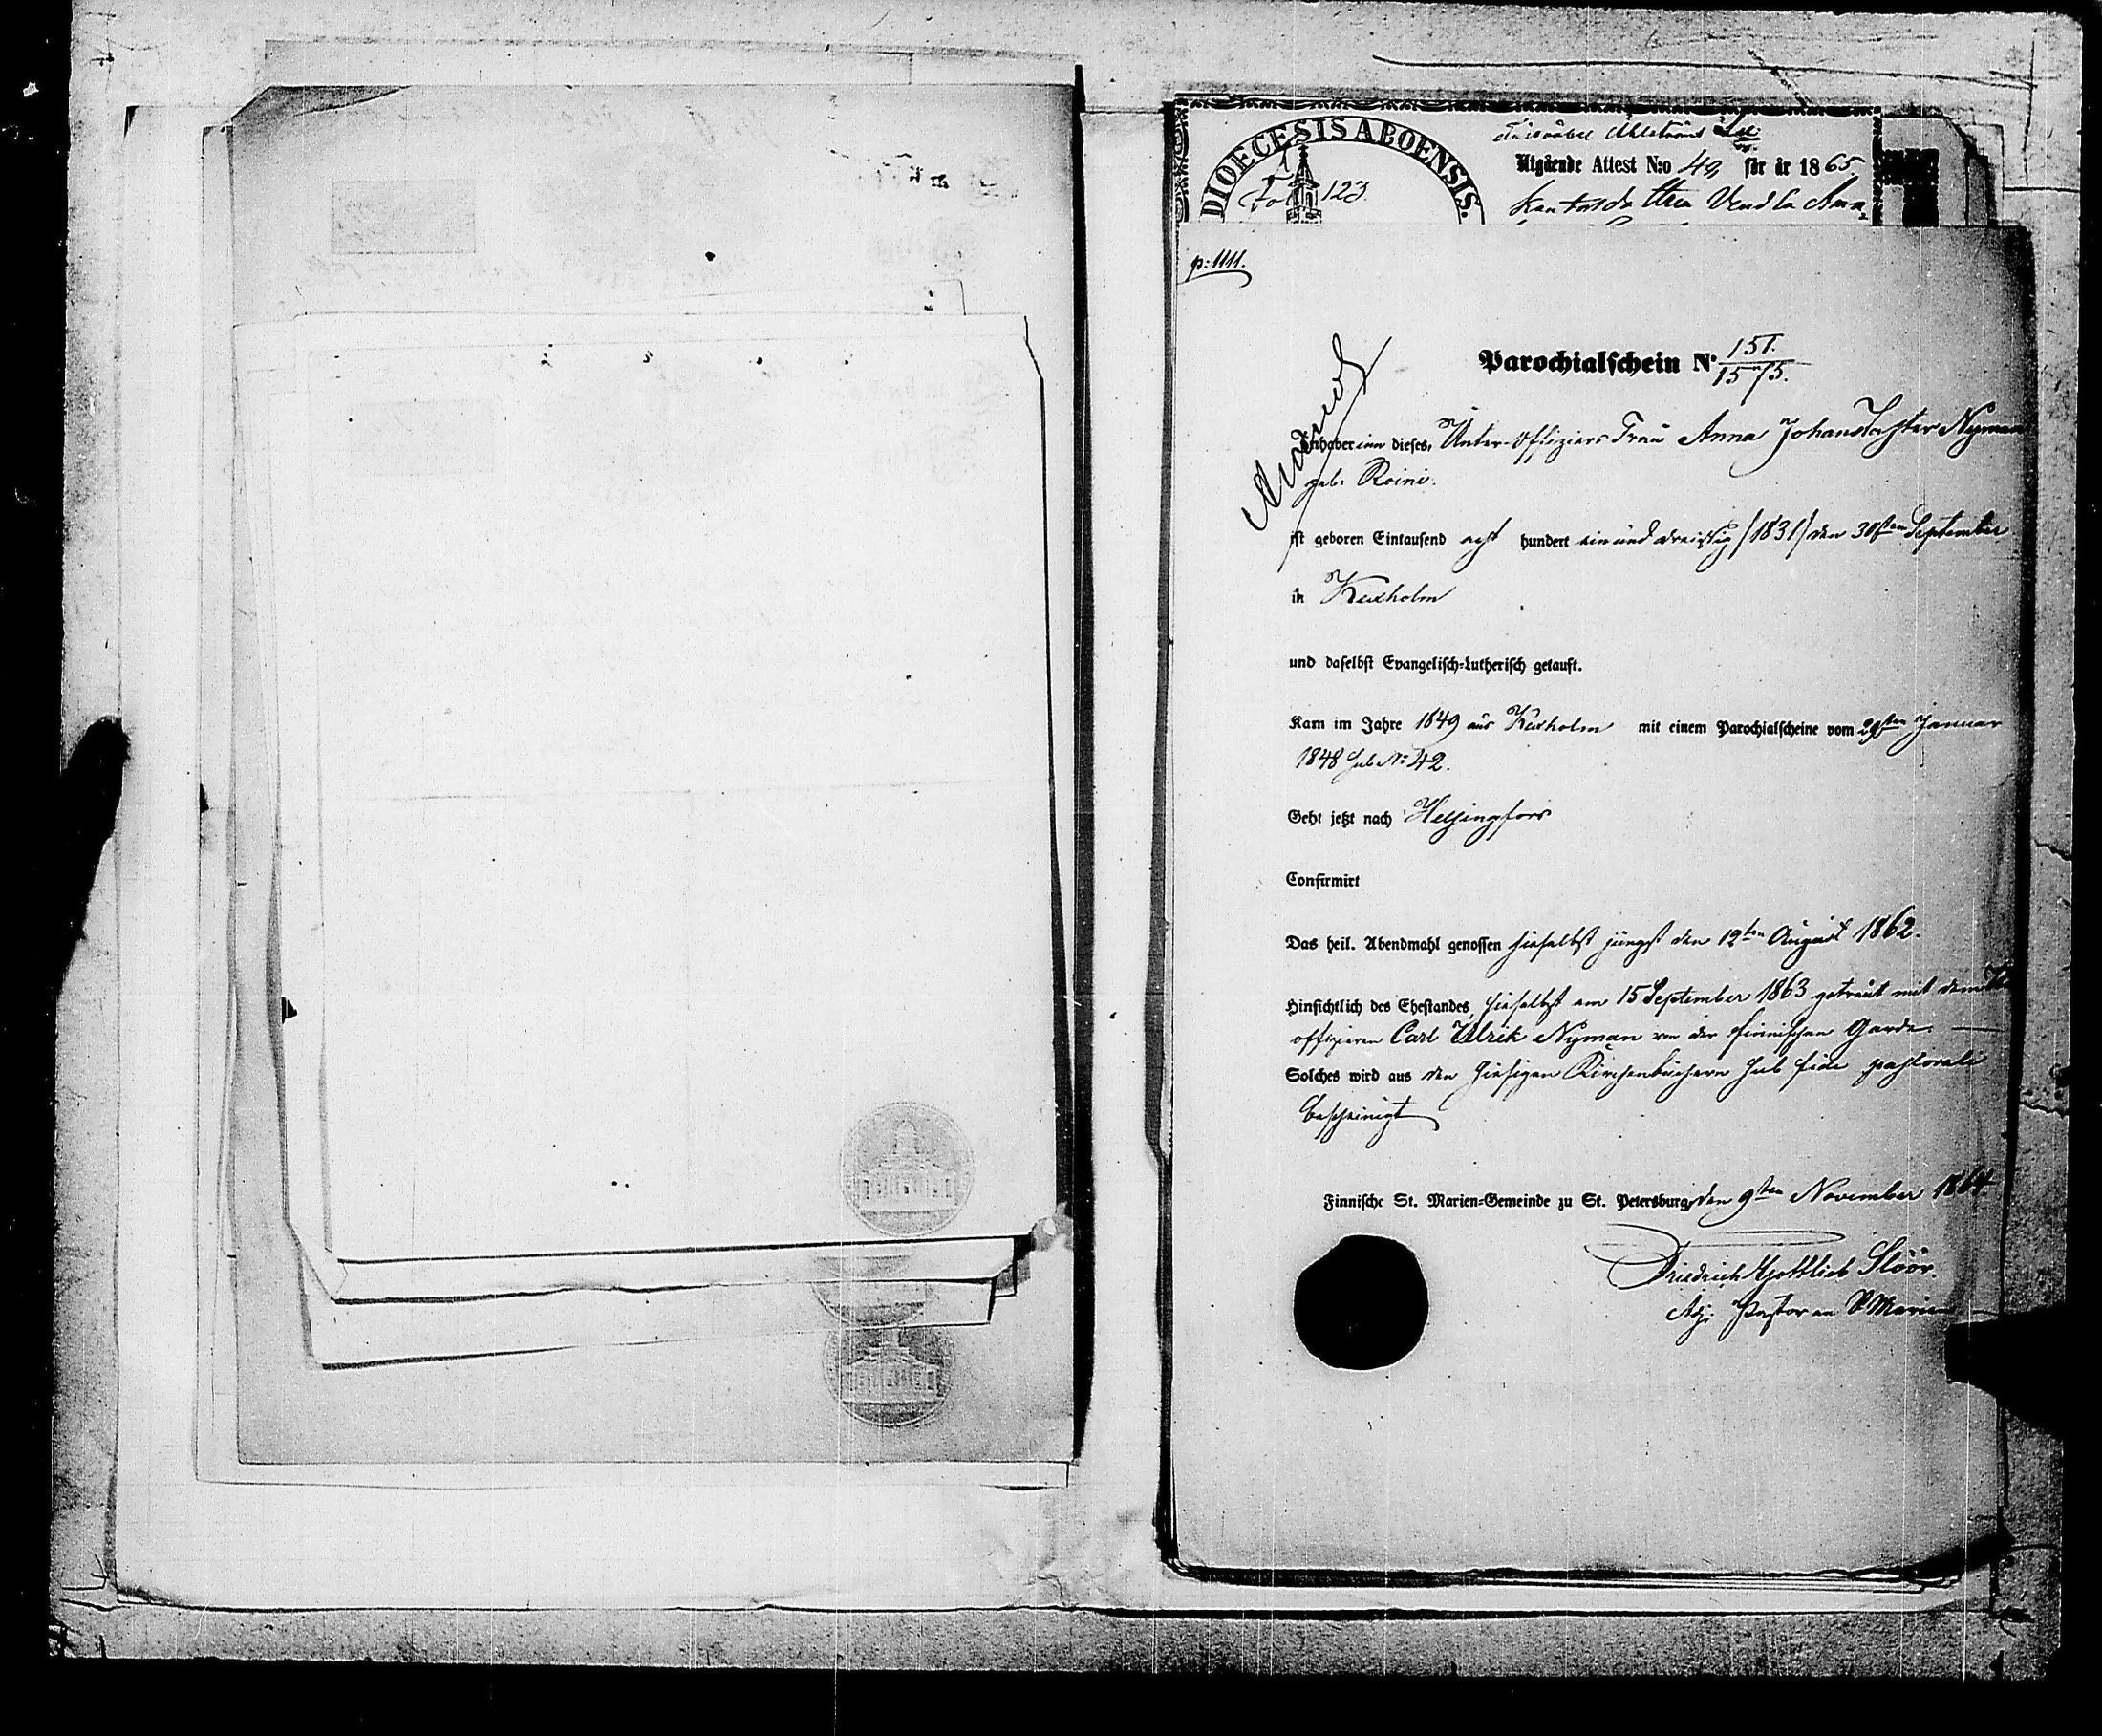 DIOECESIS ABOENSIS.
Fol 123.
Utgående Attest N:o 49 för år 1865.
Vendla
p: 1111.
Parochialschein No 151. / 1575.
Inhaberinn dieses, Unter-Offiziers Frau Anna Johanstochter Nyman
geb. Roini.
ist geboren Eintausend acht hundert ein und dreißig /1831/ den 30sten September
in Kexholm
und daselbst Evangelisch-Lutherisch getauft.
Kam im Jahre 1849 aus Kexholm mit einem Parochialscheine vom 29sten Januar
1848 sub No 42.
Geht jetzt nach Helsingfors
Confirmirt
Das heil. Abendmahl genossen hieselbst jüngst den 12ten August 1862.
Hinsichtlich des Ehestandes, hieselbst am 15 September 1863 getraut mit dem
offizieren Carl Ulrik Nyman von der finnischen Garde.
Solches wird aus den hiesigen Kirchenbüchern sub fide pastorali
bescheinigt
Finnische St. Marien-Gemeinde zu St. Petersburg, den 9ten November 1864
Friedrich Gottlieb Slöör.
Adj. Pastor an St Marien